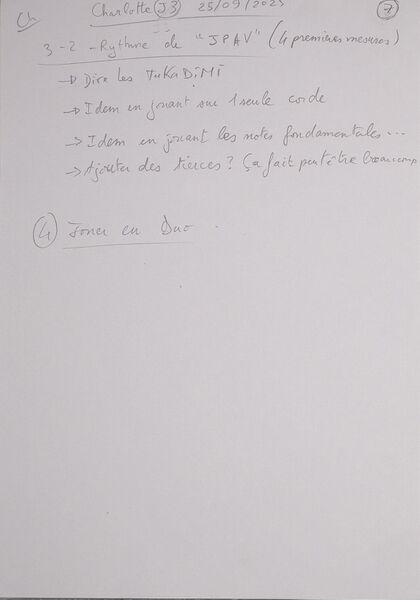 Ch Charlotte J3 25/09/2023 7
3-2 - Rythme de "JPAV" (4 premières mesures)
→ Dire les TuKaDiMi
→ Idem en jouant sur 1 seule corde
→ Idem en jouant les notes fondamentales...
→ Ajouter des tierces ? Ça fait peut être beaucoup
4 Jouer en Duo